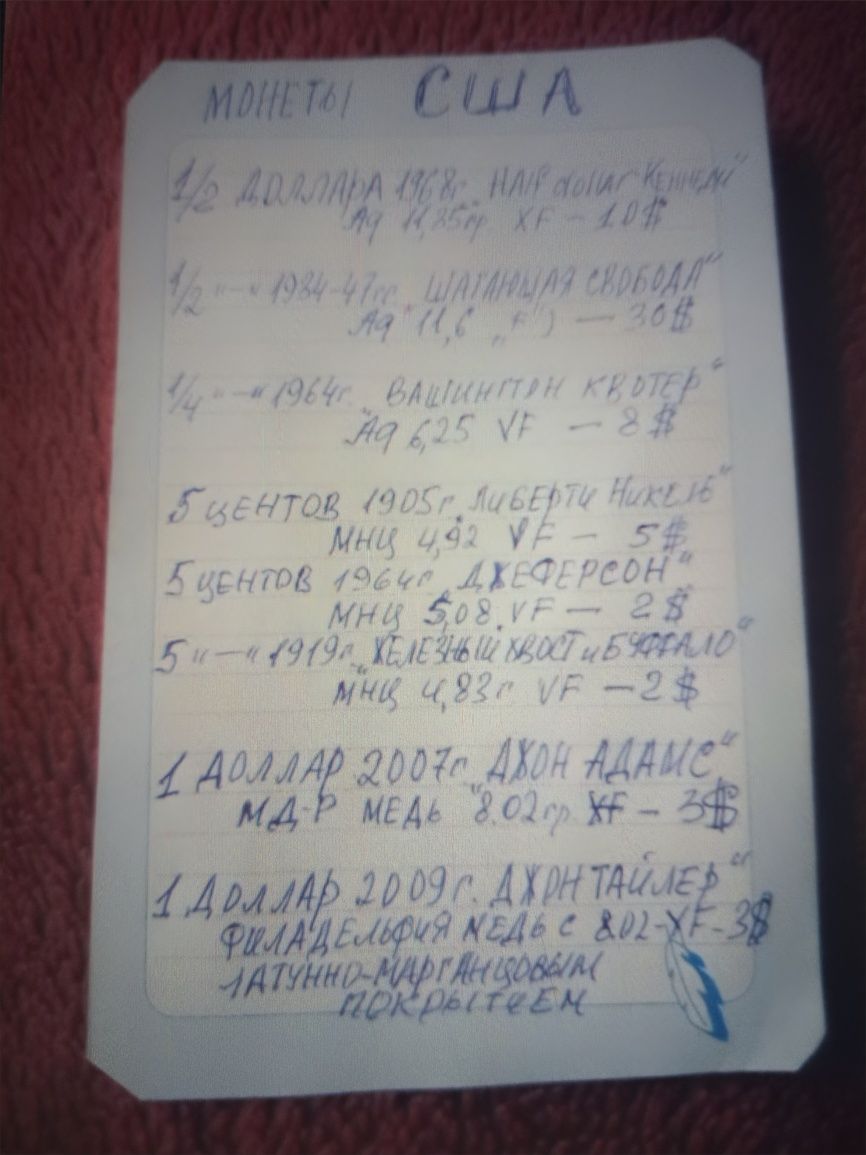 МОНЕТЫ США
1/2 ДОЛЛАРА 1968г. "HALF dollar КЕННЕДИ"
Ag 11,85гр XF - 10$
1/2 "—" 1934-47гг. "ШАГАЮЩАЯ СВОБОДА"
Ag 11,6 "F") — 30$
1/4 "—" 1964г. "ВАШИНГТОН КВОТЕР"
Ag 6,25 VF — 8$
5 ЦЕНТОВ 1905г. "ЛИБЕРТИ НИКЕЛЬ"
МНЦ 4,92 VF — 5$
5 ЦЕНТОВ 1964г. "ДЖЕФЕРСОН"
МНЦ 5,08 VF — 2$
5 "—" 1919г. "ЖЕЛЕЗНЫЙ ХВОСТ и БУФФАЛО"
МНЦ 4,83г VF — 2$
1 ДОЛЛАР 2007г. "ДЖОН АДАМС"
МД-Р МЕДЬ 8.02гр XF - 3$
1 ДОЛЛАР 2009г. "ДЖОН ТАЙЛЕР"
ФИЛАДЕЛЬФИЯ МЕДЬ С 8.02-XF-3$
ЛАТУННО-МАРГАНЦОВЫМ
ПОКРЫТИЕМ